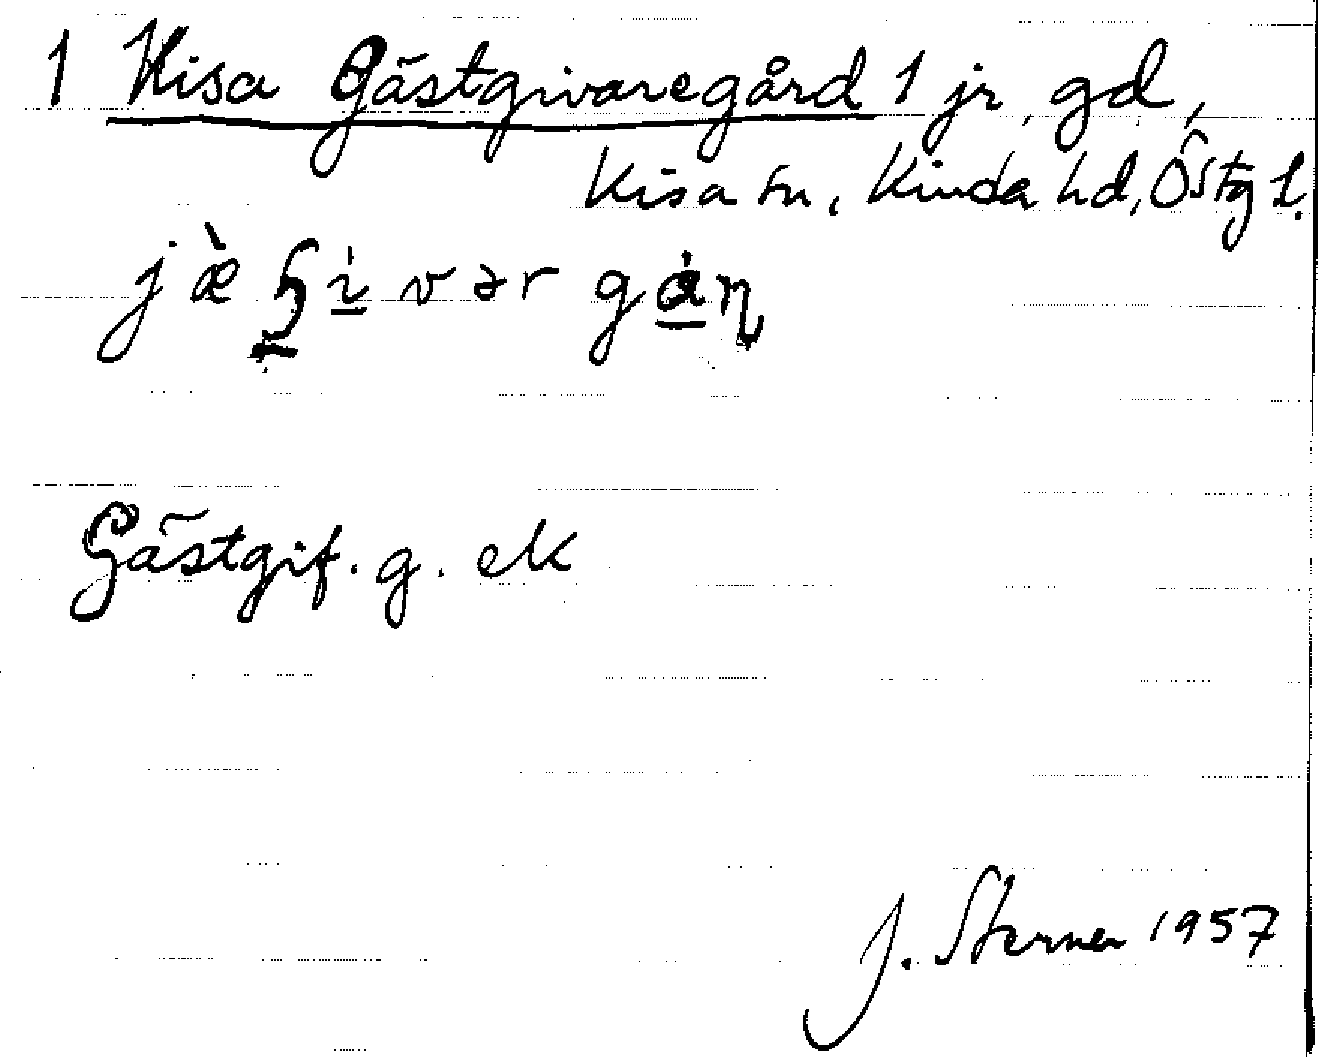 1 Kisa Gästgivaregård 1 jr, gd,
Kisa sn, Kinda hd, Östg l.
Gästgif. g. ek
J. Sterner 1957